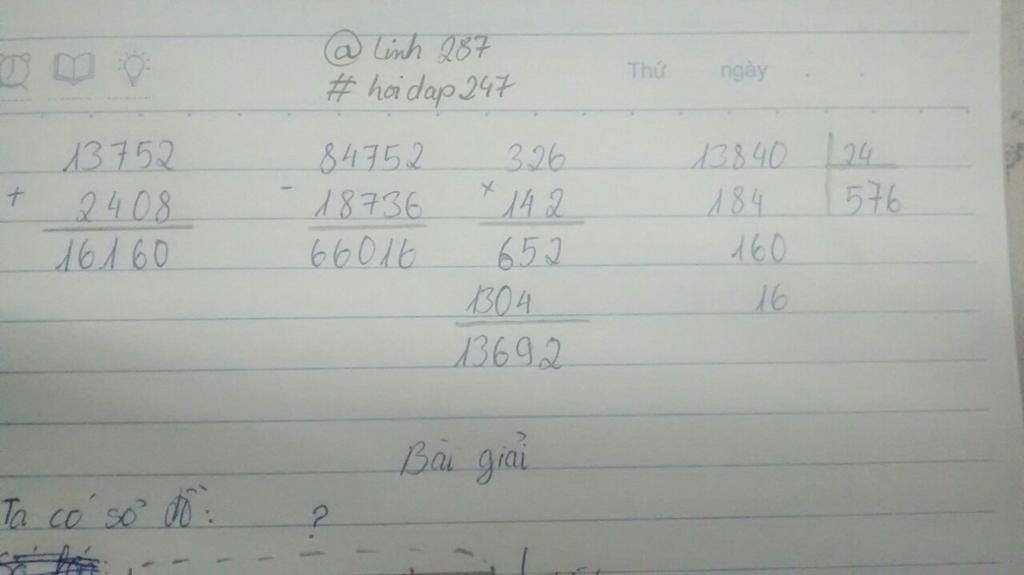 @ linh 287
# hoidap247
Thứ ngày
13752 84752 326 13840 24
+ 2408 - 18736 × 142 184 576
16160 66016 652 160
1304 16
13692
Bài giải
Ta có sơ đồ: ?